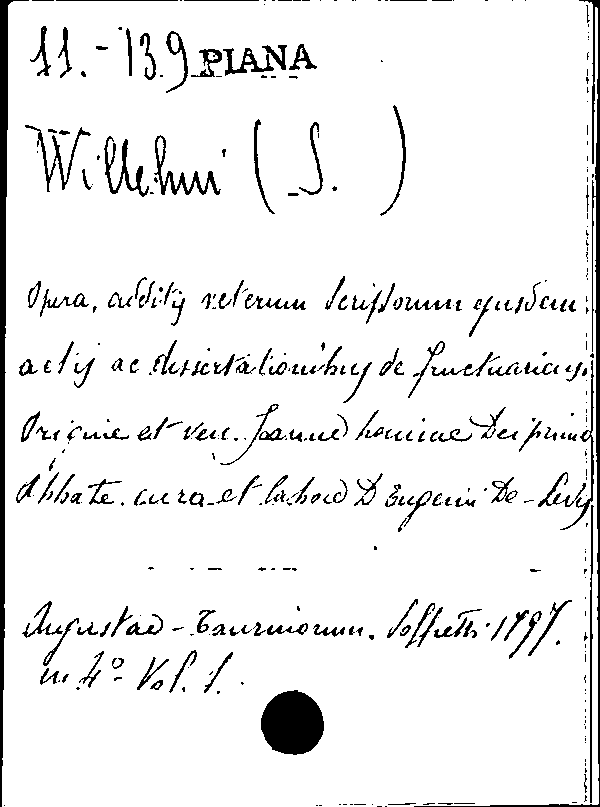 11.-139 PIANA
Willelmi (S. )
Opera, additis veterum Scriptorum ejusdem
actis ac dissertationibus de fructuariensi
Origine et ven. Joanne homine Dei primo
Abbate. cura et labore D Eugenii De-Levis
Augustae-Taurinorum. Soffietti 1797.
in 4° Vol. 1.